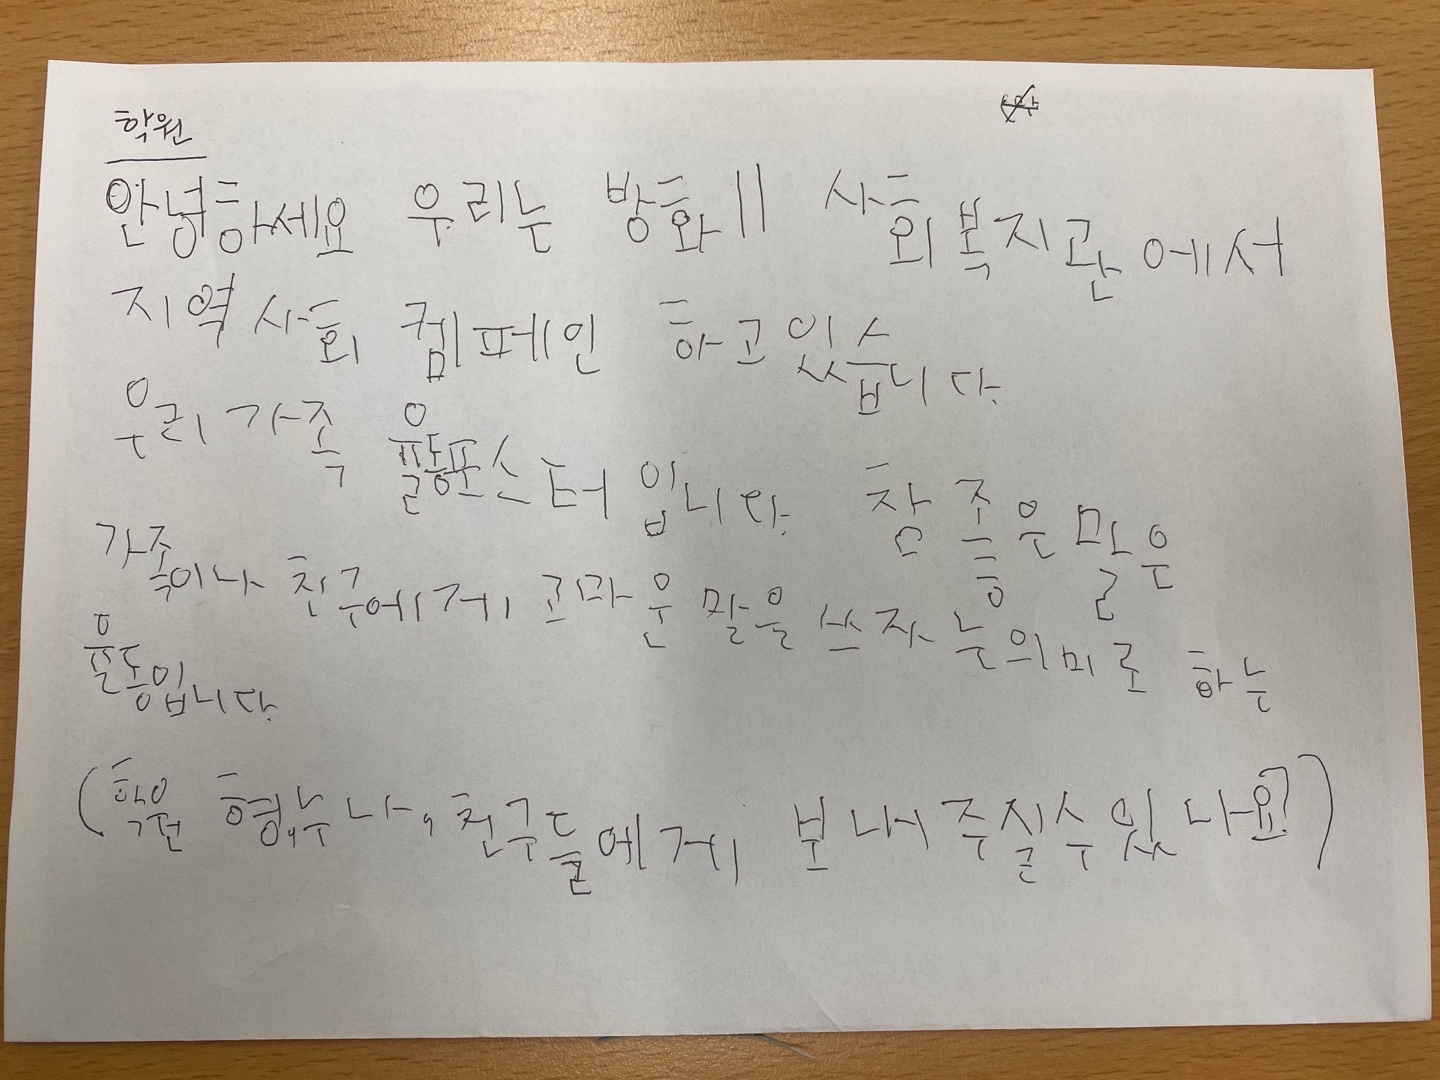 학원
안녕하세요 우리는 방화11 사회복지관에서
지역사회 켐페인 하고있습니다.
우리가족 율동포스터 입니다. 참 좋은 말은
가족이나 친구에게 고마운 말을 쓰자는의미로 하는
율동입니다.
(학원 형,누나, 친구들에게 보내주실수있나요?)